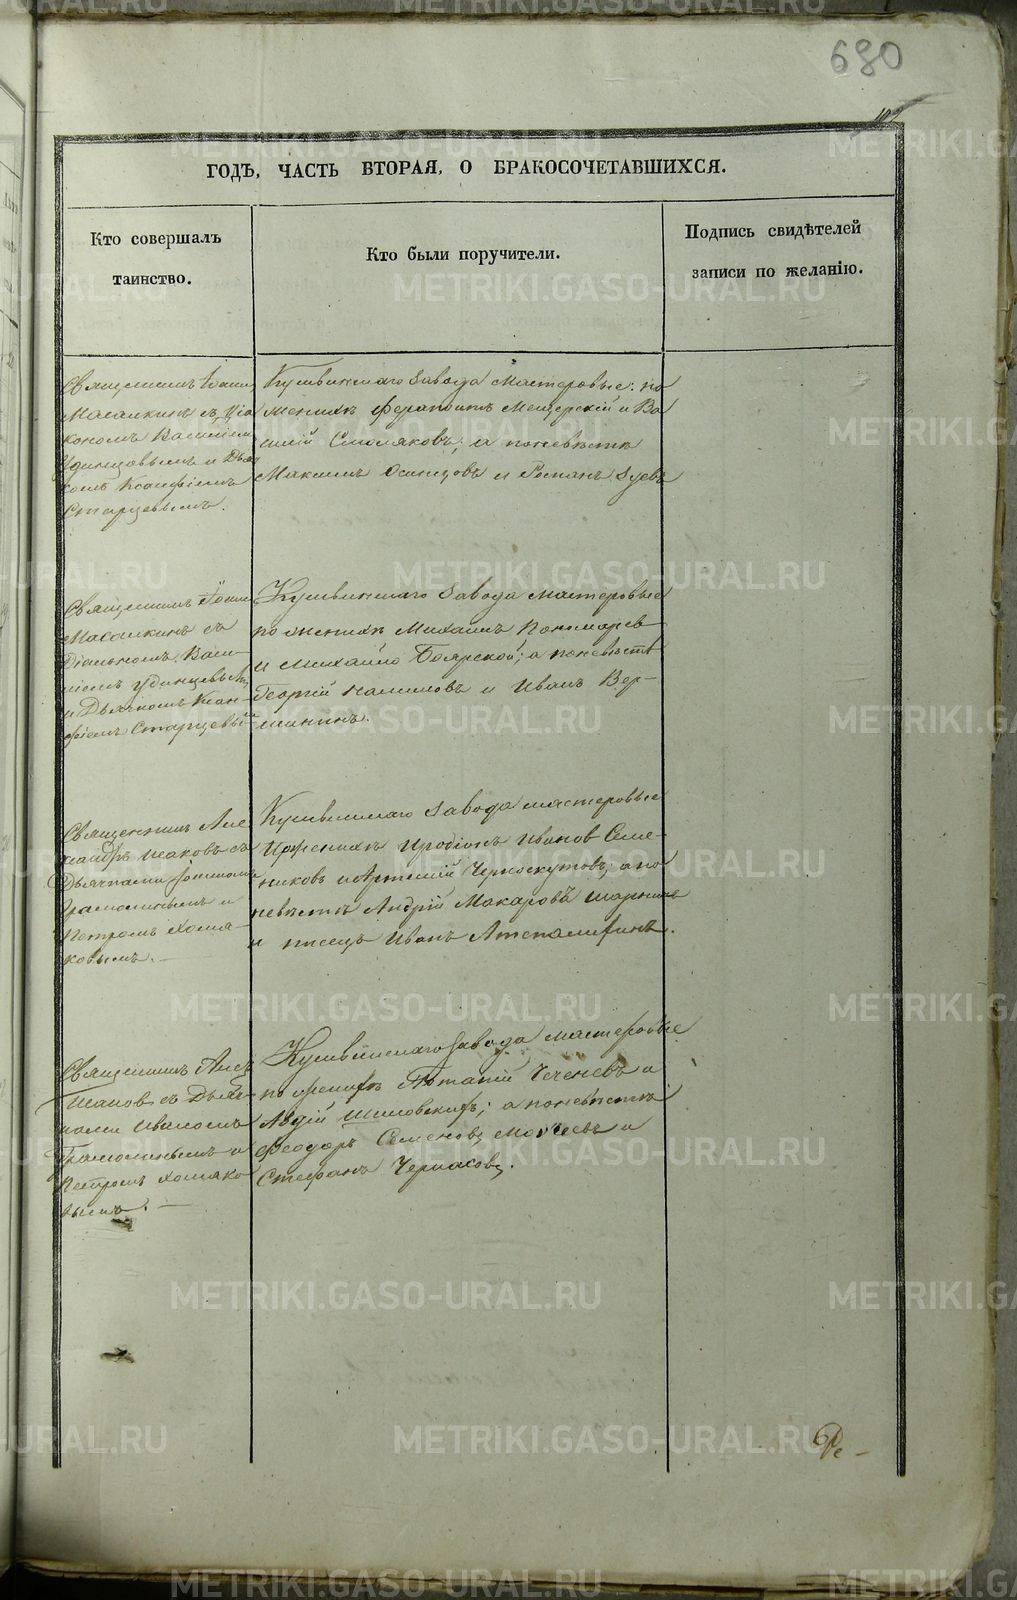 680
102
ГОДЪ, ЧАСТЬ ВТОРАЯ, О БРАКОСОЧЕТАВШИХСЯ.
Кто совершалъ
таинство.
Кто были поручители.
Подпись свидѣтелей
записи по желанію.
Священникъ Іоаннъ
Масалкинъ съ Діа
кономъ Василіемъ
Удинцовымъ и Дьяч
комъ Ксанфіемъ
Старцевымъ.
Кушвинскаго завода мастеровые: по
женихѣ Ферапонтъ Мещерскій и Ва
силій Смоляковъ; а по невѣстѣ
Максимъ Осинцовъ и Романъ Зуевъ
Священникъ Іоаннъ
Масалкинъ съ
Діакономъ Васи-
ліемъ Удинцевымъ
и Дьячкомъ Ксан-
фіемъ Старцевым
Кушвинскаго завода мастеровые
по женихѣ Михаилъ Пономарев
и Михайло Боярской; а по невѣстѣ
Георгій Налимовъ и Иванъ Вер-
шининъ.
Священникъ Але
ксандръ Исаковъ съ
Дьячками Іоанномъ
Грамолинымъ и
Петромъ Хомя-
ковымъ.
Кушвинскаго завода мастеровые
по женихѣ Иродіонъ Иванов Сте-
никовъ и Артемій Черноскутовъ; а по
невѣстѣ Андрій Макаровъ
и писецъ Иванъ
Священникъ Алек
Исаков съ Дьяч-
ками Иваномъ
Грамолинымъ и
Петромъ Хомяко
вымъ.
Кушвинскаго завода мастеровые
по женихѣ Потапій Чеченевъ и
Шиловскихъ; а по невѣстѣ
Феодоръ Семеновъ Мокѣевъ и
Стефанъ Черпаковъ.
METRIKI.GASO-URAL.RU